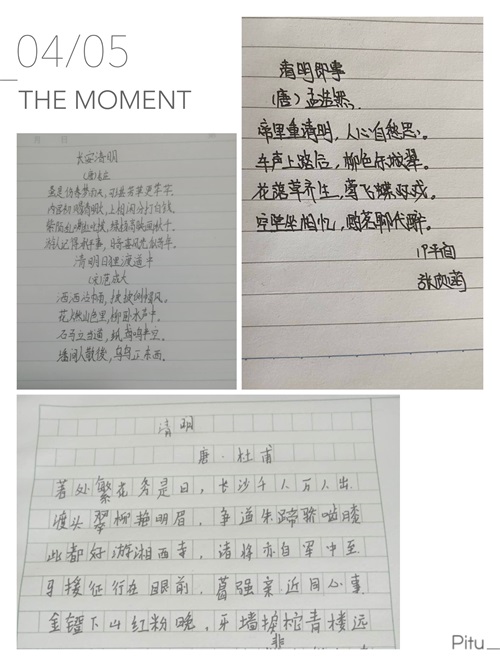 04/05
THE MOMENT
长安清明
蚤是伤春梦雨天,可堪芳草更芊芊。
内官初赐清明火,上相闲分打白钱。
紫陌乱嘶红叱拨,绿杨高映画秋千。
游人记得承平事,暗喜风光似昔年。
清明日狸渡道中
(宋)范成大
洒洒沾巾雨,披披侧帽风。
花燃山色里,柳卧水声中。
石马立当道,纸鸢鸣半空。
墦间人散后,乌鸟正东西。
清明即事
(唐)孟浩然
帝里重清明,人心自愁思。
车声上路合,柳色东城翠。
花落草齐生,莺飞蝶双戏。
空堂坐相忆,酌茗聊代醉。
清明
唐·杜甫
著处繁花务是日,长沙千人万人出
渡头翠柳艳明眉,争道朱蹄骄啮膝
此都好游湘西寺,诸将亦自军中至
马援征行在眼前,葛强亲近同心事
金镫下山红粉晚,牙墙捩柁青楼远
Pitu